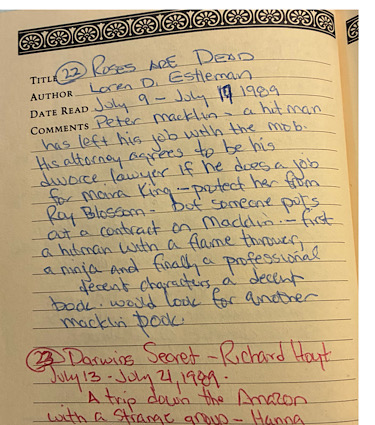 TITLE 22 Roses ARE DEAD
AUTHOR Loren D. Estleman
DATE READ July 9 - July 1989
COMMENTS Peter Macklin - a hitman
has left his job with the mob.
His attorney agrees to be his
divorce lawyer if he does a job
for Moira King - protect her from
Ray Blossom - But someone puts
out a contract on Macklin - first
a hitman with a flame thrower,
a ninja and finally a professional
decent characters a decent
book. would look for another
macklin book.
23 Darwins Secret - Richard Hoyt
July 13 - July 21, 1989.
A trip down the Amazon
with a strange group - Hanna